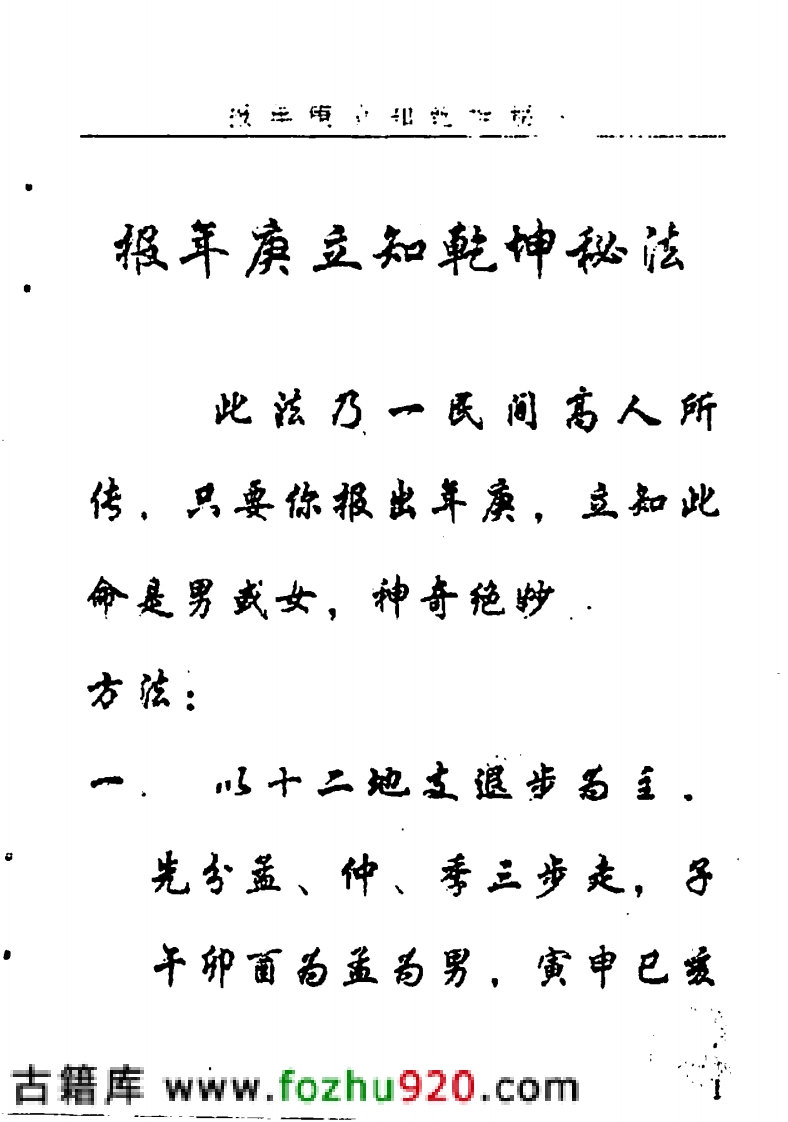 报年庚立知乾坤秘法
报年庚立知乾坤秘法
此法乃一民间高人所
传，只要你报出年庚，立知此
命是男或女，神奇绝妙．
方法：
一．以十二地支退步为主．
先分孟、仲、季三步走，子
午卯酉为孟为男，寅申巳亥
古籍库 www.fozhu920.com
1